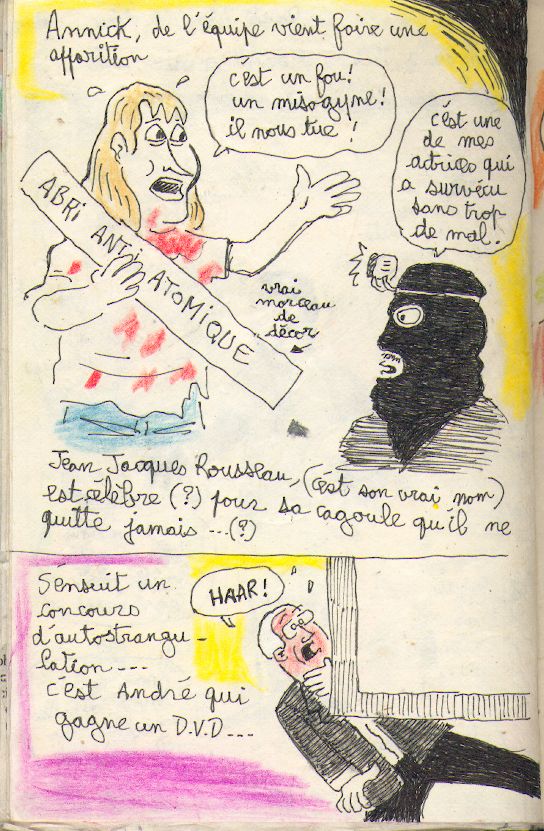 Annick, de l'équipe vient faire une
apparition
c'est un fou!
un misogyne!
il nous tue!
c'est une
de mes
actrices qui
a survécu
sans trop
de mal.
ABRI ANTI ATOMIQUE
vrai
morceau
de
décor
Jean Jacques Rousseau, (c'est son vrai nom)
est célèbre (?) pour sa cagoule qu'il ne
quitte jamais...(?)
S'ensuit un
concours
d'autostrangu-
lation....
c'est André qui
gagne un D.V.D....
HAAR!